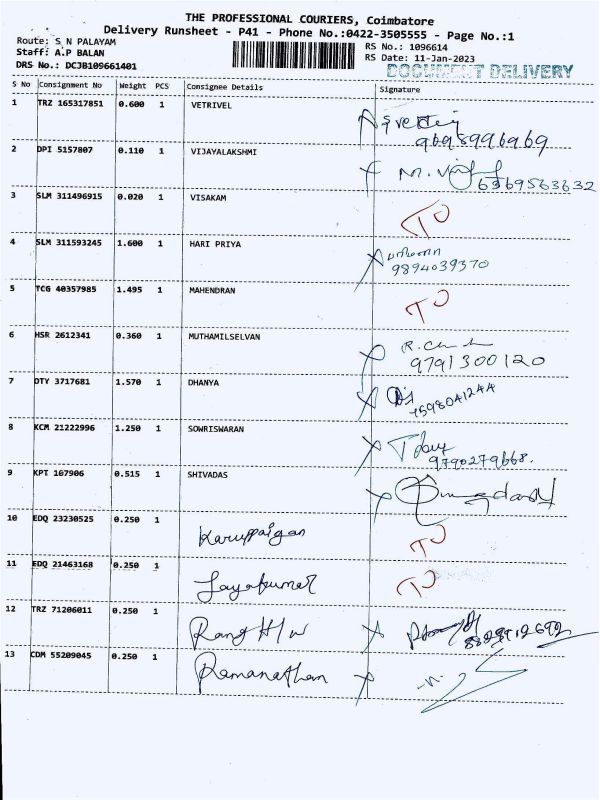 THE PROFESSIONAL COURIERS, Coimbatore
Delivery Runsheet - P41 - Phone No.:0422-3505555 - Page No.:1
Route: S N PALAYAM
Staff: A.P BALAN
DRS No.: DCJB109661401
RS No.: 1096614
RS Date: 11-Jan-2023
DOCUMENT DELIVERY
S No Consignment No Weight PCS Consignee Details Signature
1 TRZ 165317851 0.600 1 VETRIVEL
9698996969
2 DPI 5157807 0.110 1 VIJAYALAKSHMI
6369563632
3 SLM 311496915 0.020 1 VISAKAM TO
4 SLM 311593245 1.600 1 HARI PRIYA
9894039370
5 TCG 40357985 1.495 1 MAHENDRAN TO
6 HSR 2612341 0.360 1 MUTHAMILSELVAN
9791300120
7 DTY 3717681 1.570 1 DHANYA
7598041244
8 KCM 21222996 1.250 1 SOWRISWARAN
9790279668.
9 KPT 107906 0.515 1 SHIVADAS
10 EDQ 23230525 0.250 1 Karuppaigan TO
11 EDQ 21463168 0.250 1 Jayakumar TO
12 TRZ 71206011 0.250 1
13 CDM 55209045 0.250 1 Ramanathan